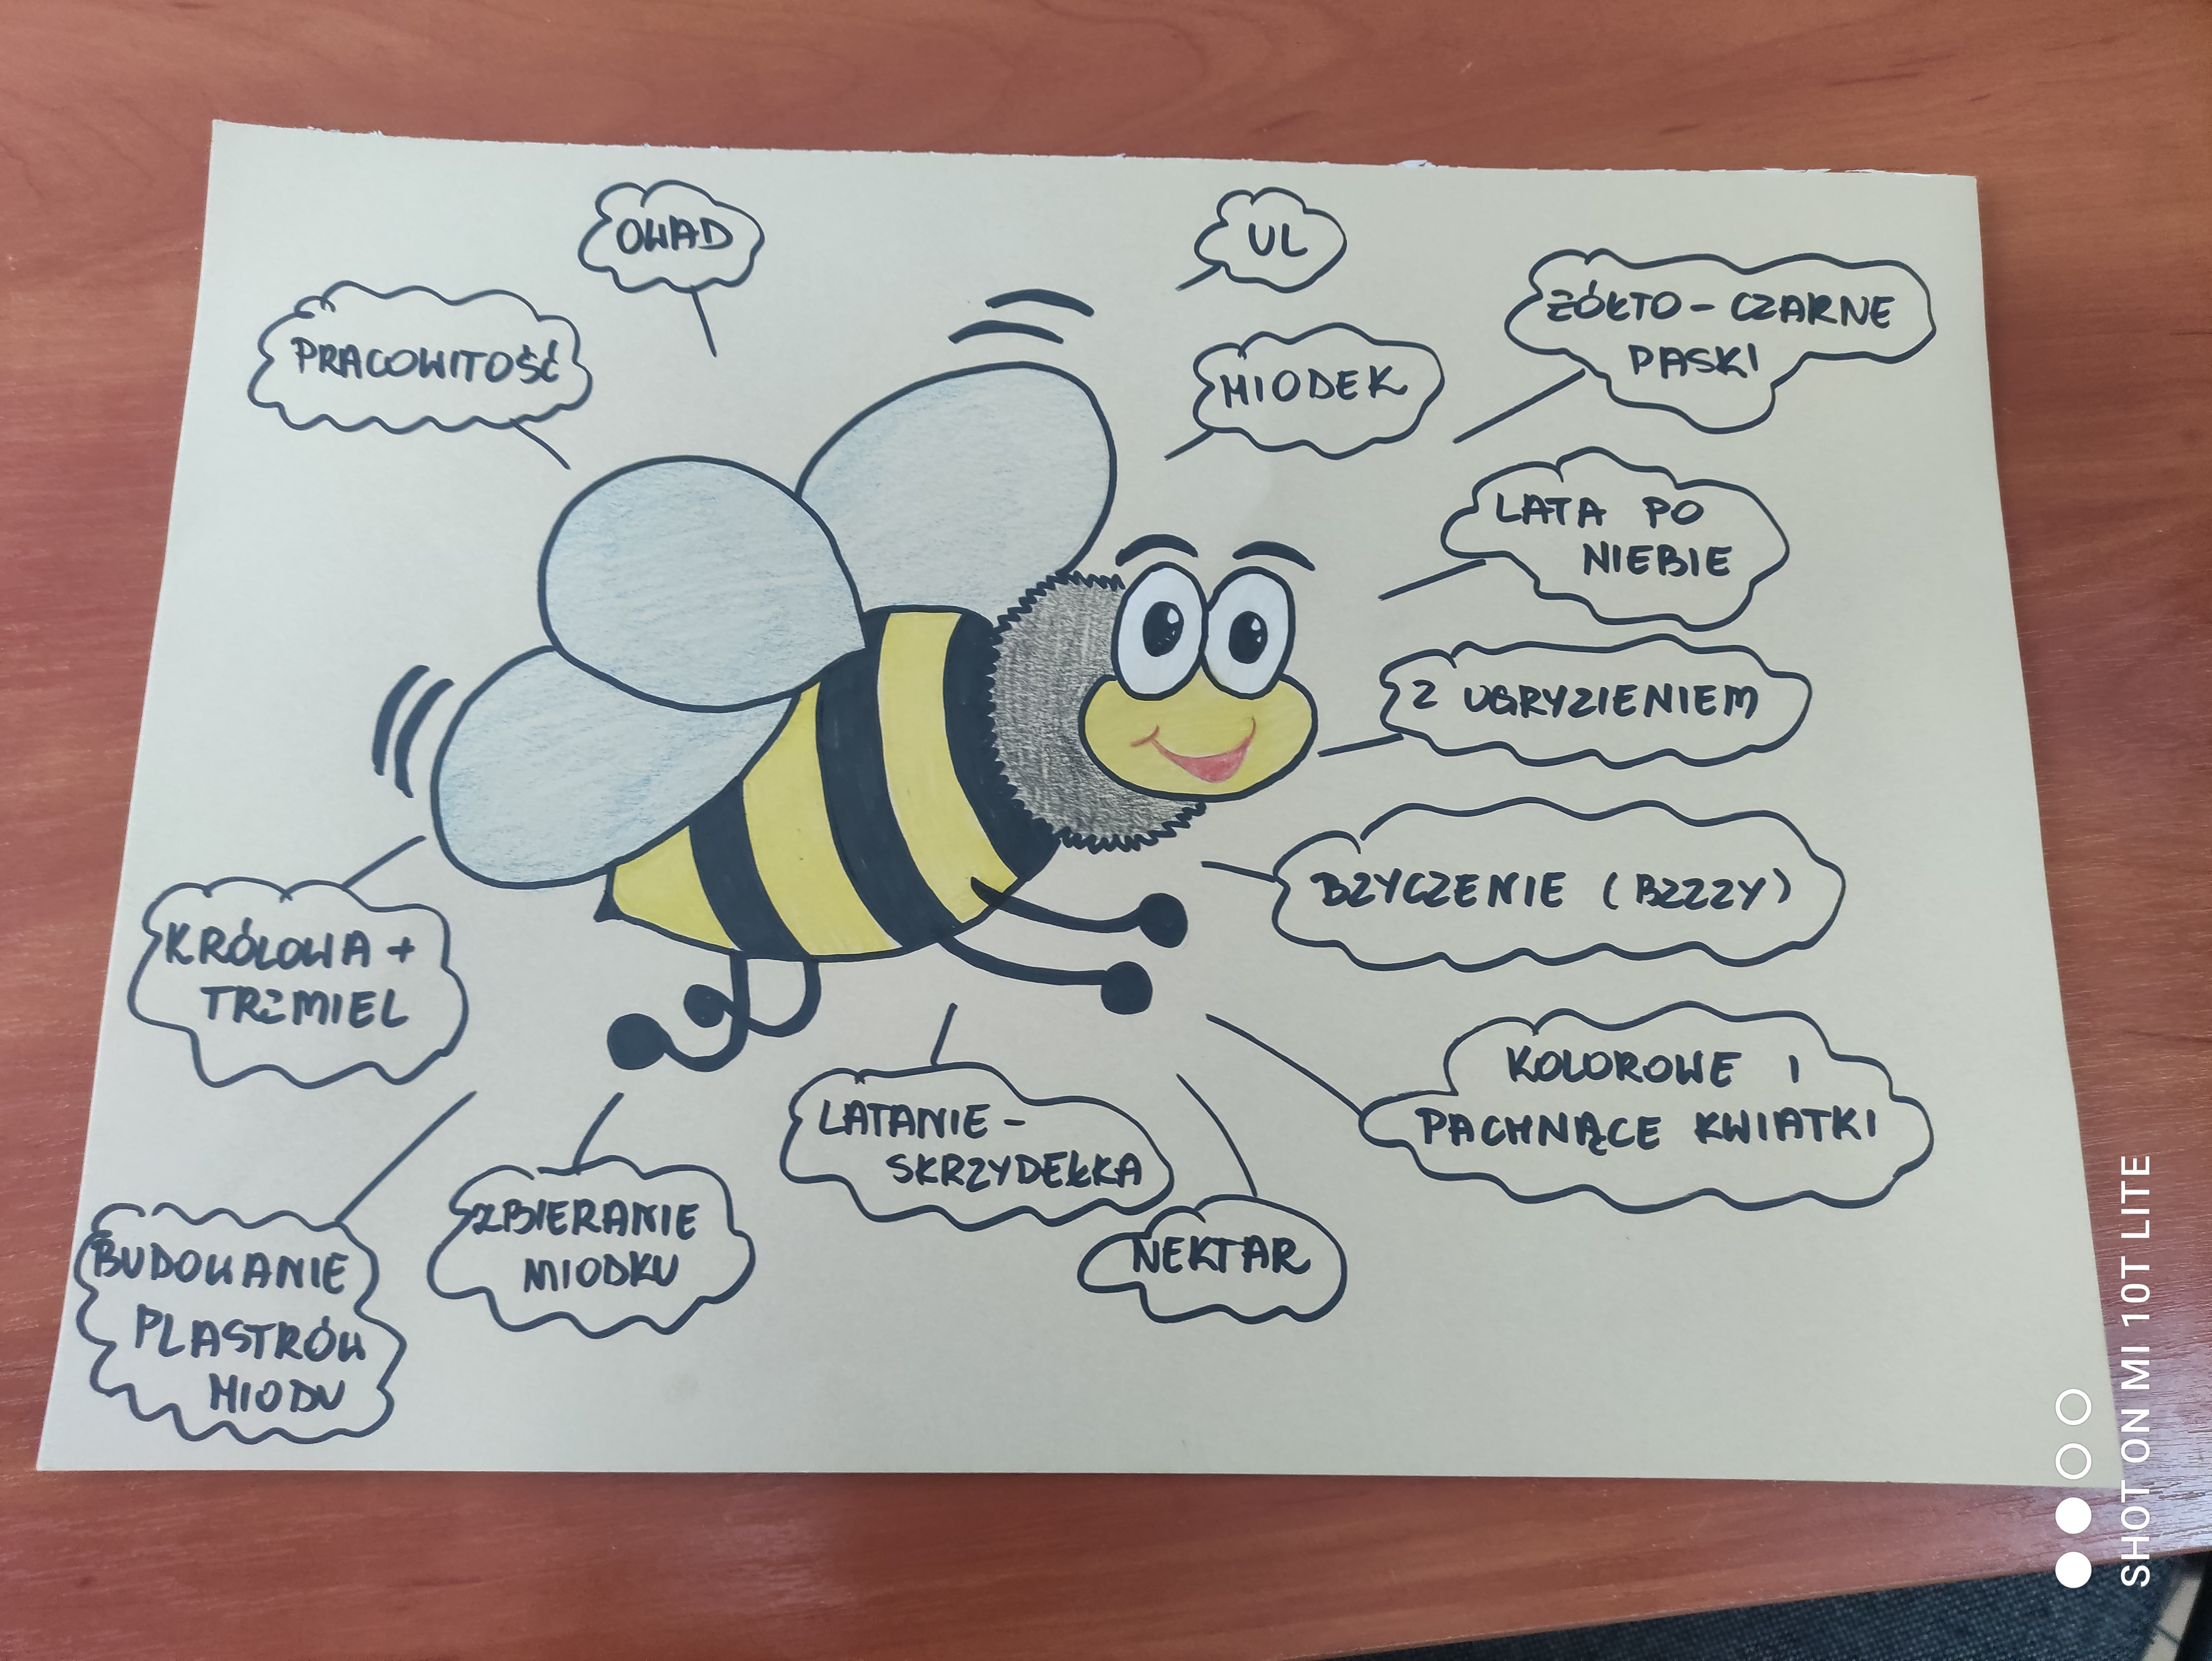 OWAD
UL
PRACOWITOŚĆ
ŻÓŁTO - CZARNE
PASKI
MIODEK
LATA PO
NIEBIE
Z UGRYZIENIEM
BZYCZENIE (BZZZY)
KRÓLOWA +
TRZMIEL
KOLOROWE I
PACHNĄCE KWIATKI
LATANIE -
SKRZYDEŁKA
ZBIERANIE
MIODKU
NEKTAR
BUDOWANIE
PLASTRÓW
MIODU
SHOT ON MI 10T LITE